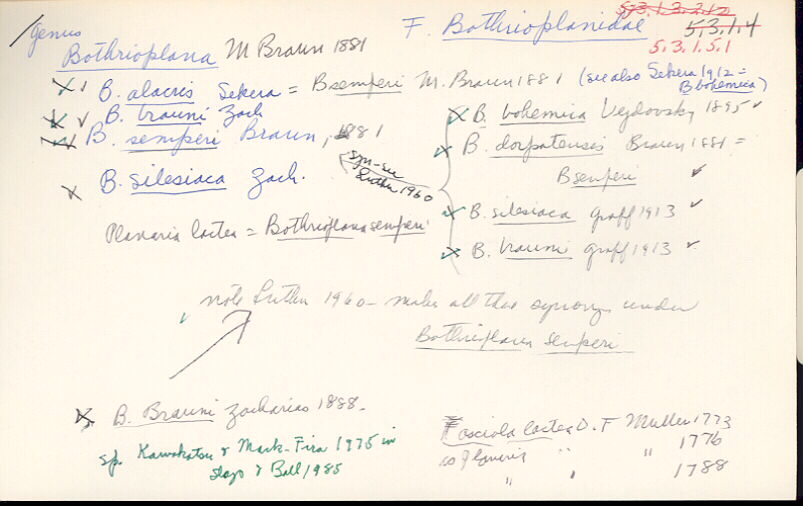 genus
Bothrioplana M Braun 1881
F. Bothrioplanidae
5.3.1.3.2.12
5.3.1.4
5.3.1.5.1
B. alacris Sekera = B semperi M. Braun 1881 (see also Sekera 1912 = B bohemica)
B. brauni Zach
B. semperi Braun, 1881
B. silesiaca Zach.
syn-see Luther 1960
B. bohemica Vejdovsky 1895
B. dorpatensis Braun 1881 =
B semperi
B. silesiaca Graff 1913
B. brauni Graff 1913
Planaria lactea = Bothrioplana semperi
note Luther 1960 - makes all these synonyms under
Bothrioplana semperi
B. Brauni Zacharias 1888.
sp. Kawakatsu & Mack-Fira 1975 in
& Ball 1985
Fasciola lactea O. F Muller 1773
" " 1776
" " 1788